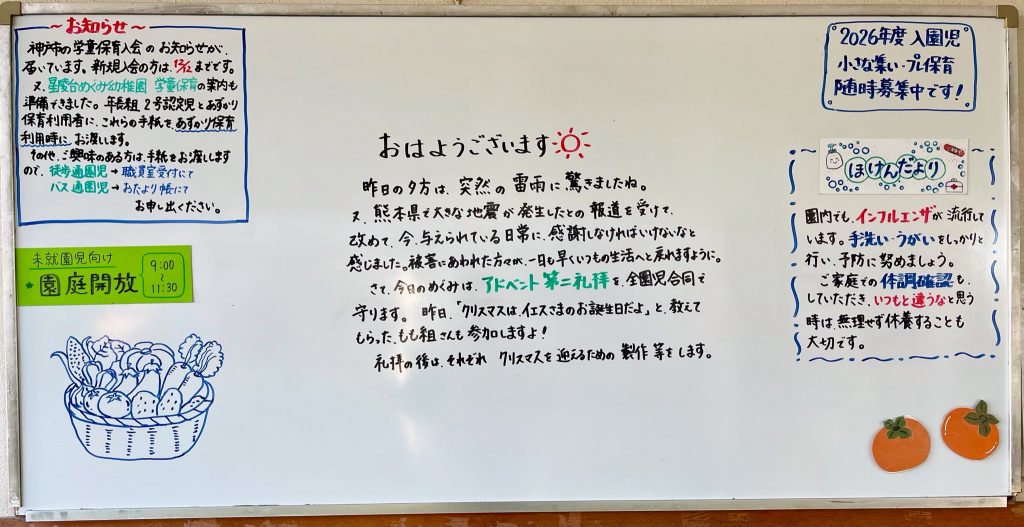 ～お知らせ～
神戸市の学童保育入会のお知らせが、
届いています。新規入会の方は、12/12までです。
又、星陵台めぐみ幼稚園 学童保育の案内も
準備できました。年長組 2号認定児とあずかり
保育利用者に、これらの手紙を、あずかり保育
利用時に お渡しします。
その他、ご興味のある方は、手紙をお渡しします
ので、徒歩通園児→職員室受付にて
バス通園児→おたより帳にて
お申し出ください。
未就園児向け
園庭開放
9:00
～
11:30
おはようございます
昨日の夕方は、突然の雷雨に驚きましたね。
又、熊本県で大きな地震が発生したとの報道を受けて、
改めて、今、与えられている日常に、感謝しなければいけないなと
感じました。被害にあわれた方々が、一日も早くいつもの生活へと戻れますように。
さて、今日のめぐみは、アドベント第二礼拝を、全園児合同で
守ります。昨日、「クリスマスは、イエスさまのお誕生日だよ」と、教えて
もらった、もも組さんも参加しますよ！
礼拝の後は、それぞれ クリスマスを迎えるための製作等をします。
2026年度 入園児
小さな集い・プレ保育
随時募集中です！
ほけんだより
園内でも、インフルエンザが流行して
います。手洗い・うがいをしっかりと
行い、予防に努めましょう。
ご家庭での体調確認も、
していただき、いつもと違うなと思う
時は、無理せず休養することも
大切です。